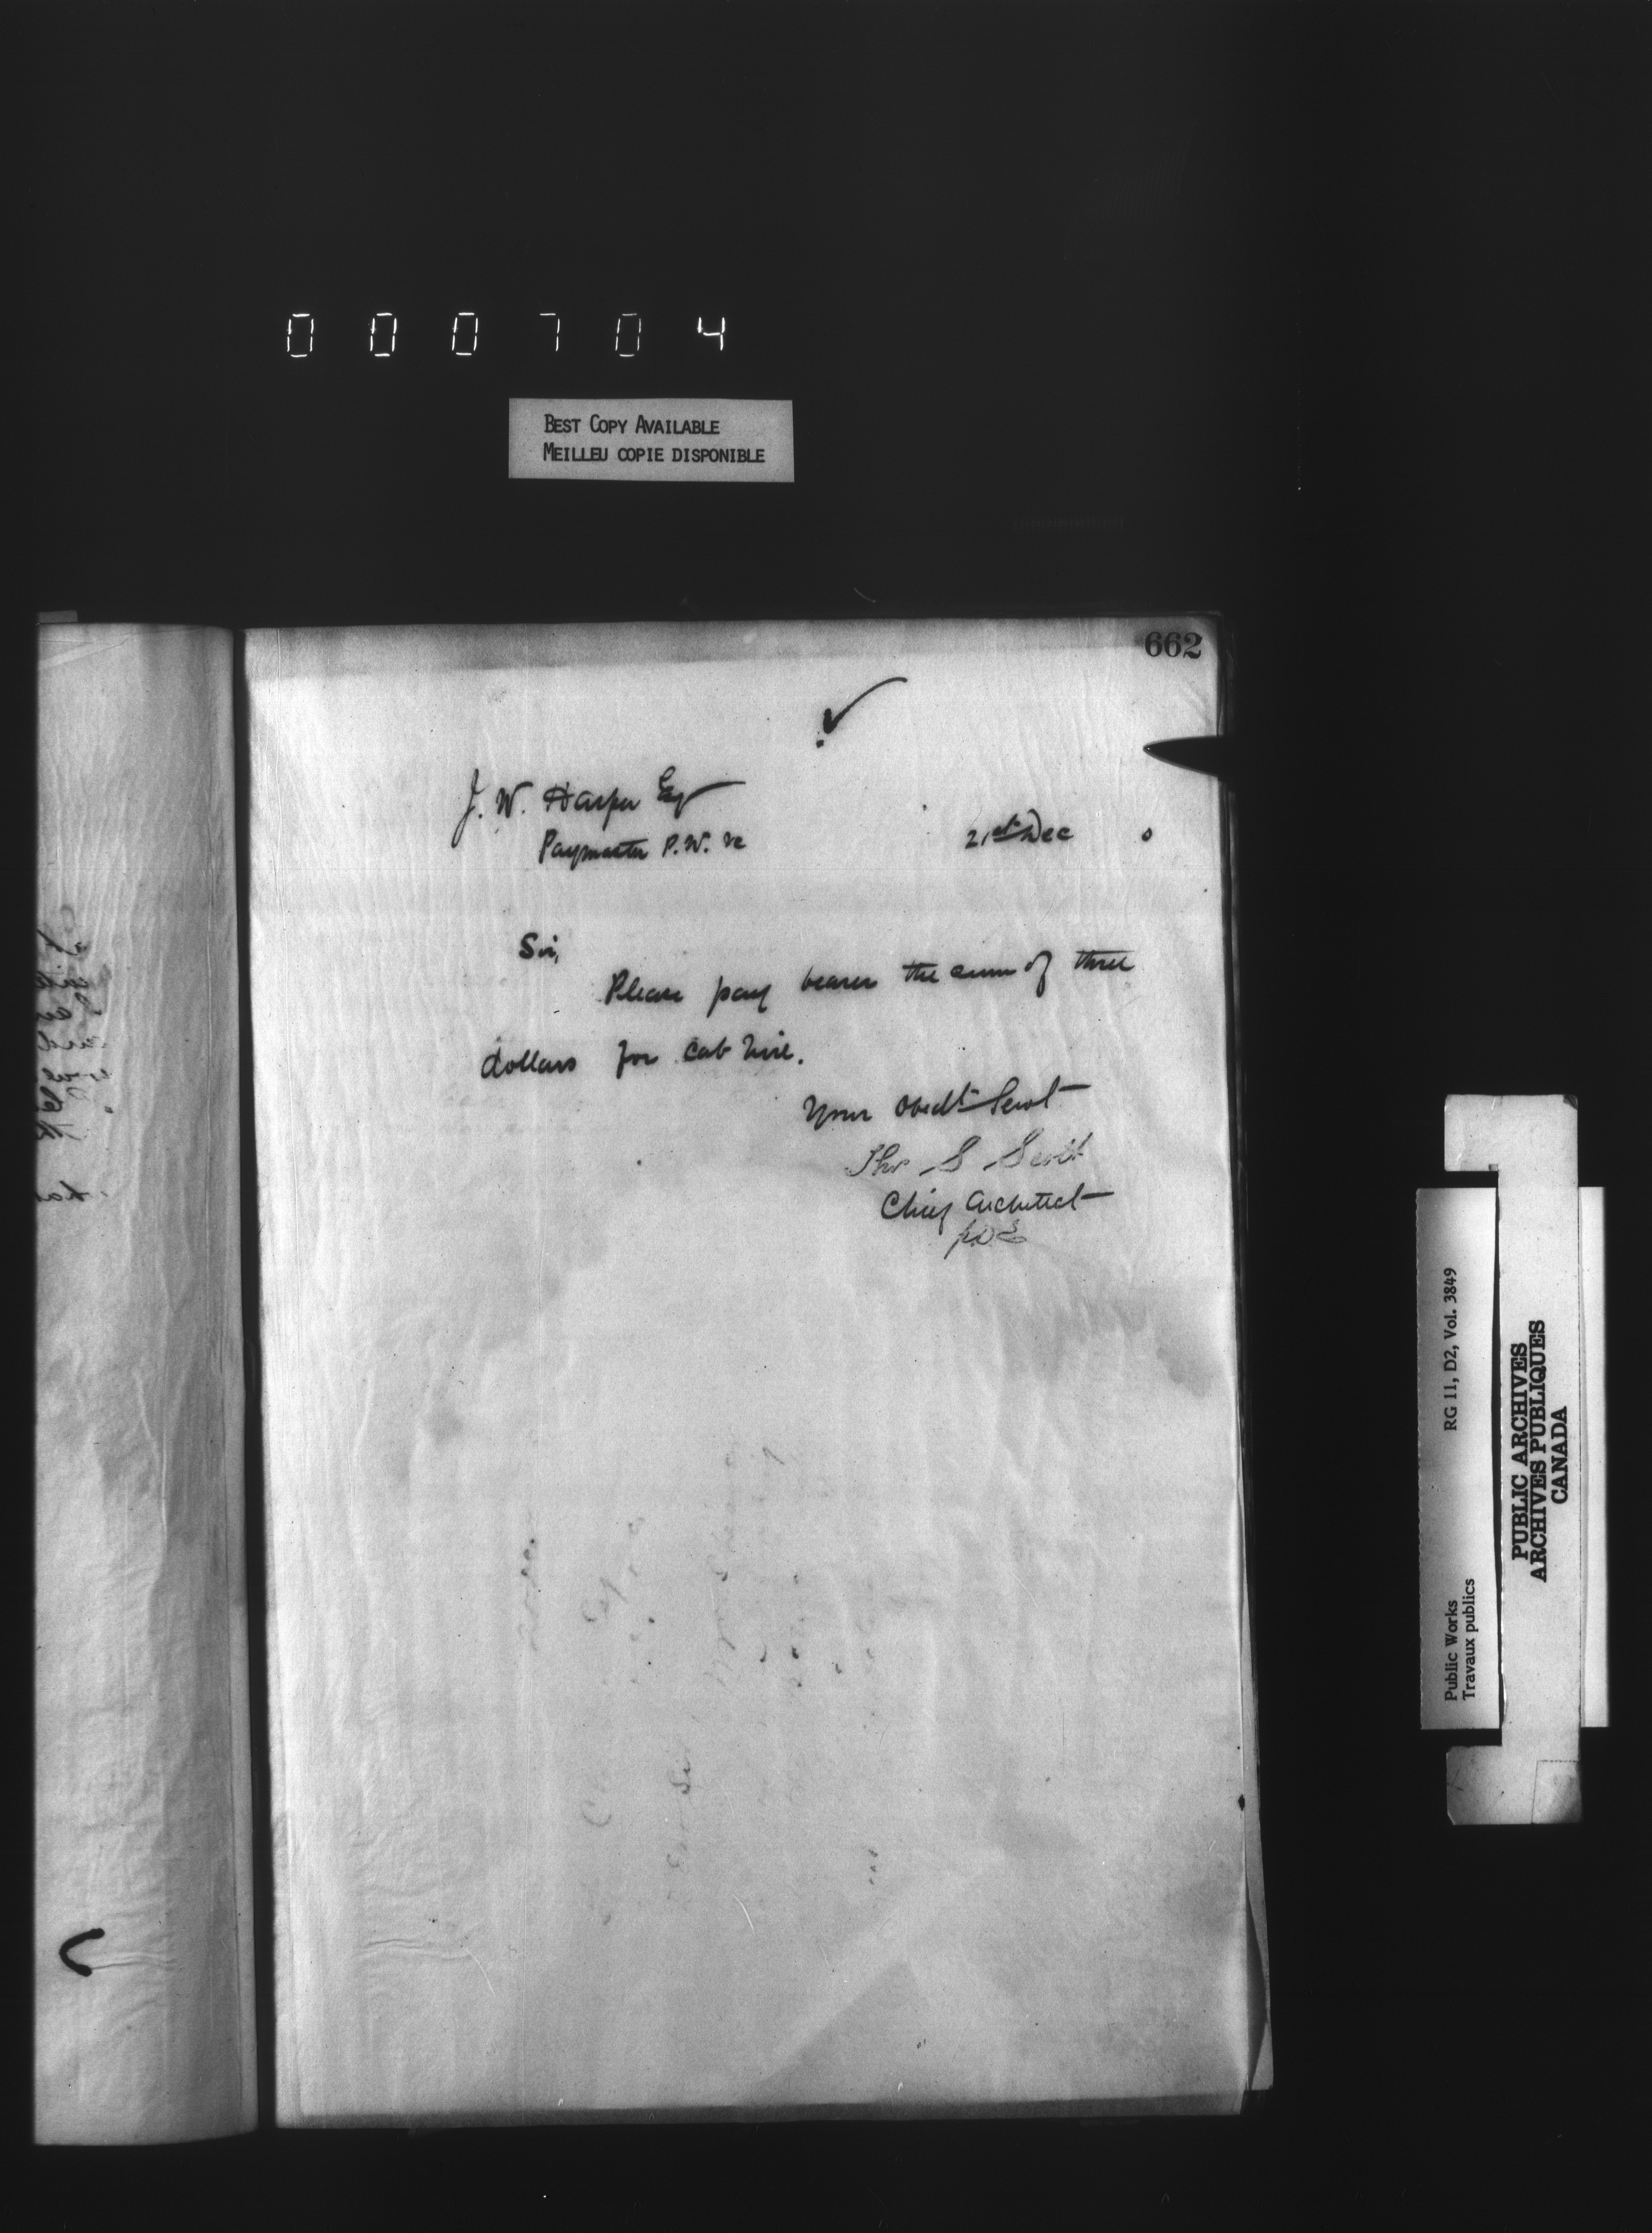 000704
BEST COPY AVAILABLE
MEILLEU COPIE DISPONIBLE
662
J. W. Harper Esq
Paymaster P.W. &c
21st Dec 0
Sir,
Please pay bearer the sum of three
dollars for cab hire.
Your Obedt Servt
Thos S Scott
Chief Architect
Public Works
Travaux publics
RG 11, D2, Vol. 3849
PUBLIC ARCHIVES
ARCHIVES PUBLIQUES
CANADA